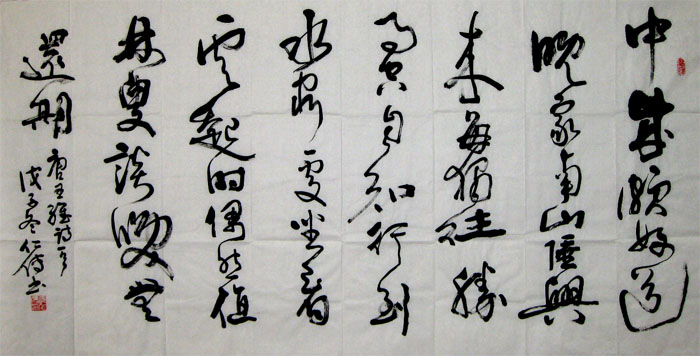 中歲頗好道
晚家南山陲興
来每獨往勝
事空自知行到
水窮處坐看
雲起时偶然值
林叟談笑無
還期
唐王維詩一首
戊子冬仁书